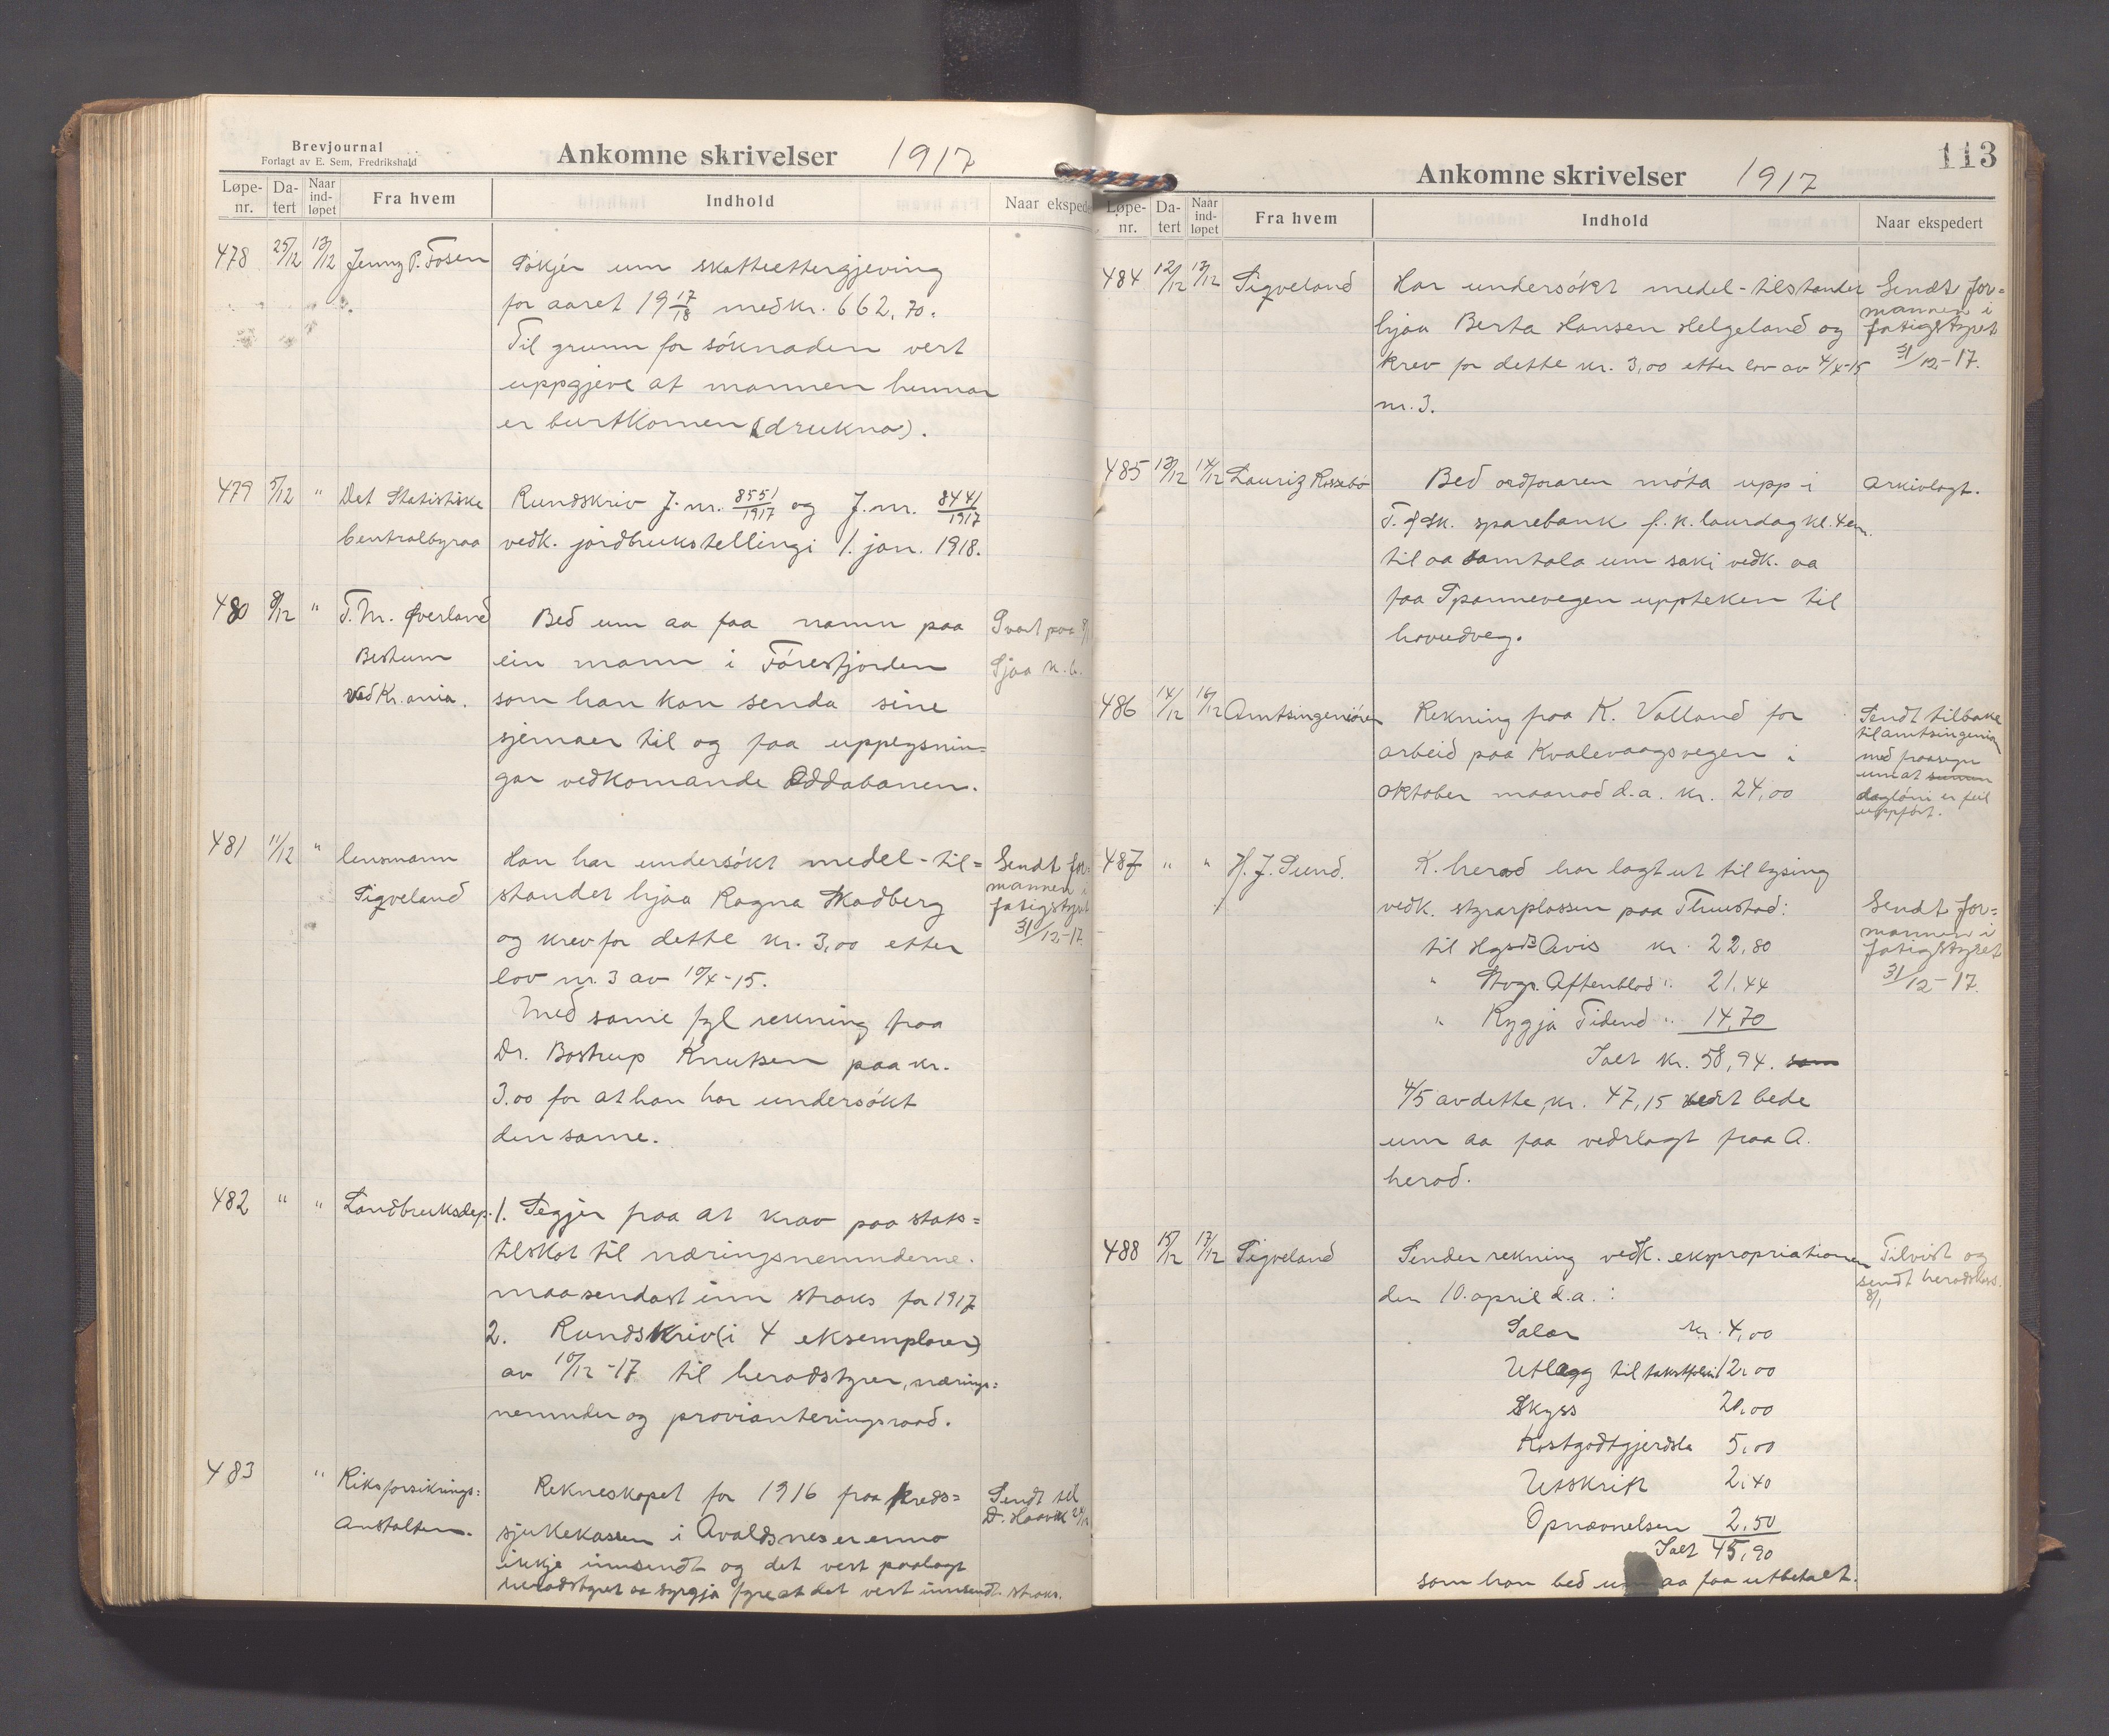 Brevjournal
Forlagt av E. Sem, Fredrikshald
Ankomne skrivelser 1917
Løpe-nr. Da-tert Naar ind-løpet Fra hvem Indhold Naar ekspede
478 25/12 13/12 Jenny P. Fosen Søkjer um skatteettergjeving
for aaret 19 17/18 med kr. 662,70.
Til grunn for søknaden vert
uppgjeve at mannen hennar
er burtkomen (drukna).
479 5/12 " Det Statistiske Rundskriv J.nr. 8551/1917 og J.nr. 8441/1917
Centralbyraa vedk. jordbrukstellingi 1. jan. 1918.
480 8/12 " T. M. Øverland Bed um aa faa namn paa Svart paa
Bestum ein mann i Føresfjorden Sjaa k.b.
ved Kr.ania. som han kan senda sine
sjemaer til og faa upplysnin=
gar vedkomande Oddabanen.
481 11/12 " Lensmann Han har undersøkt medel-til= Sendt for=
mannen i
Sigveland standet hjaa Ragna Skadberg fatigstyret
og krev for dette kr. 3,00 etter 31/12-17.
lov nr. 3 av 10/4-15.
Med same fyl rekning fraa
Dr. Bostrup Knutsen paa kr.
3.00 for at han har undersøkt
den same.
482 " " Landbruksdep. 1. Segjer fraa at krav paa stats=
tilskot til næringsnemnderne.
maa sendast inn straks for 1917
2. Rundskriv (i 4 eksemplarer)
av 10/12-17 til heradstyrer, nærings=
nemnder og provianteringsraad.
483 " Riksforsikrings= Rekneskapet for 1916 fraa kreds= Sendt til
Anstalten. sjukekassen i Avaldsnes er enno D. Haavik
ikkje innsendt og det vert paalagt
heradstyret aa syrgja fyre at det vert innsendt straks.
113
Ankomne skrivelser 1917
Løpe-nr. Da-tert Naar ind-løpet Fra hvem Indhold Naar ekspedert
484 12/12 13/12 Sigveland Har undersøkt medel-tilstandet Sendt for=
mannen i
hjaa Berta Hansen Helgeland og fatigstyret
krev for dette kr. 3,00 etter lov av 4/4-15 31/12-17.
nr. 3.
485 13/12 14/12 Lauritz Rossebø Bed ordføraren møta upp i Arkivlagt.
T. og Sk. sparebank f.k. laurdag kl. 4 em.
til aa samtala um saki vedk. aa
faa Spannevegen uppteken til
hovudveg.
486 14/12 16/12 Amtsingeniøren Rekning fraa K. Valland for Sendt tilbake
til amtsingeniør
arbeid paa Kvalevaagsvegen i med fraasegn
um at summen
oktober maanad d.a. kr. 24,00 dagløni er feil
uppført.
487 " " H. J. Sund. K. herad har lagt ut til lysing
vedk. styrarplassen paa Thuestad: Sendt for=
mannen i
til Hgsds Avis kr. 22,80 fatigstyret
" Stvgr. Aftenblad " 21,44 31/12-17.
" Rygja Tidend " 14,70
Ialt kr. 58,94. som
4/5 av dette, kr. 47,15 vert bede
um aa faa vedrlagt fraa A.
herad.
488 15/12 17/12 Sigveland Sender rekning vedk. ekspropriationen Tilvist og
sendt heradskass.
den 10. april d.a. : 8/1
Salær kr. 4,00
Utlegg til 12,00
Skyss 20,00
Kostgodtgjerdsle 5,00
Utskrift 2,40
Opnævnelsen 2,50
Ialt 45,90
som han bed um aa faa utbetalt.